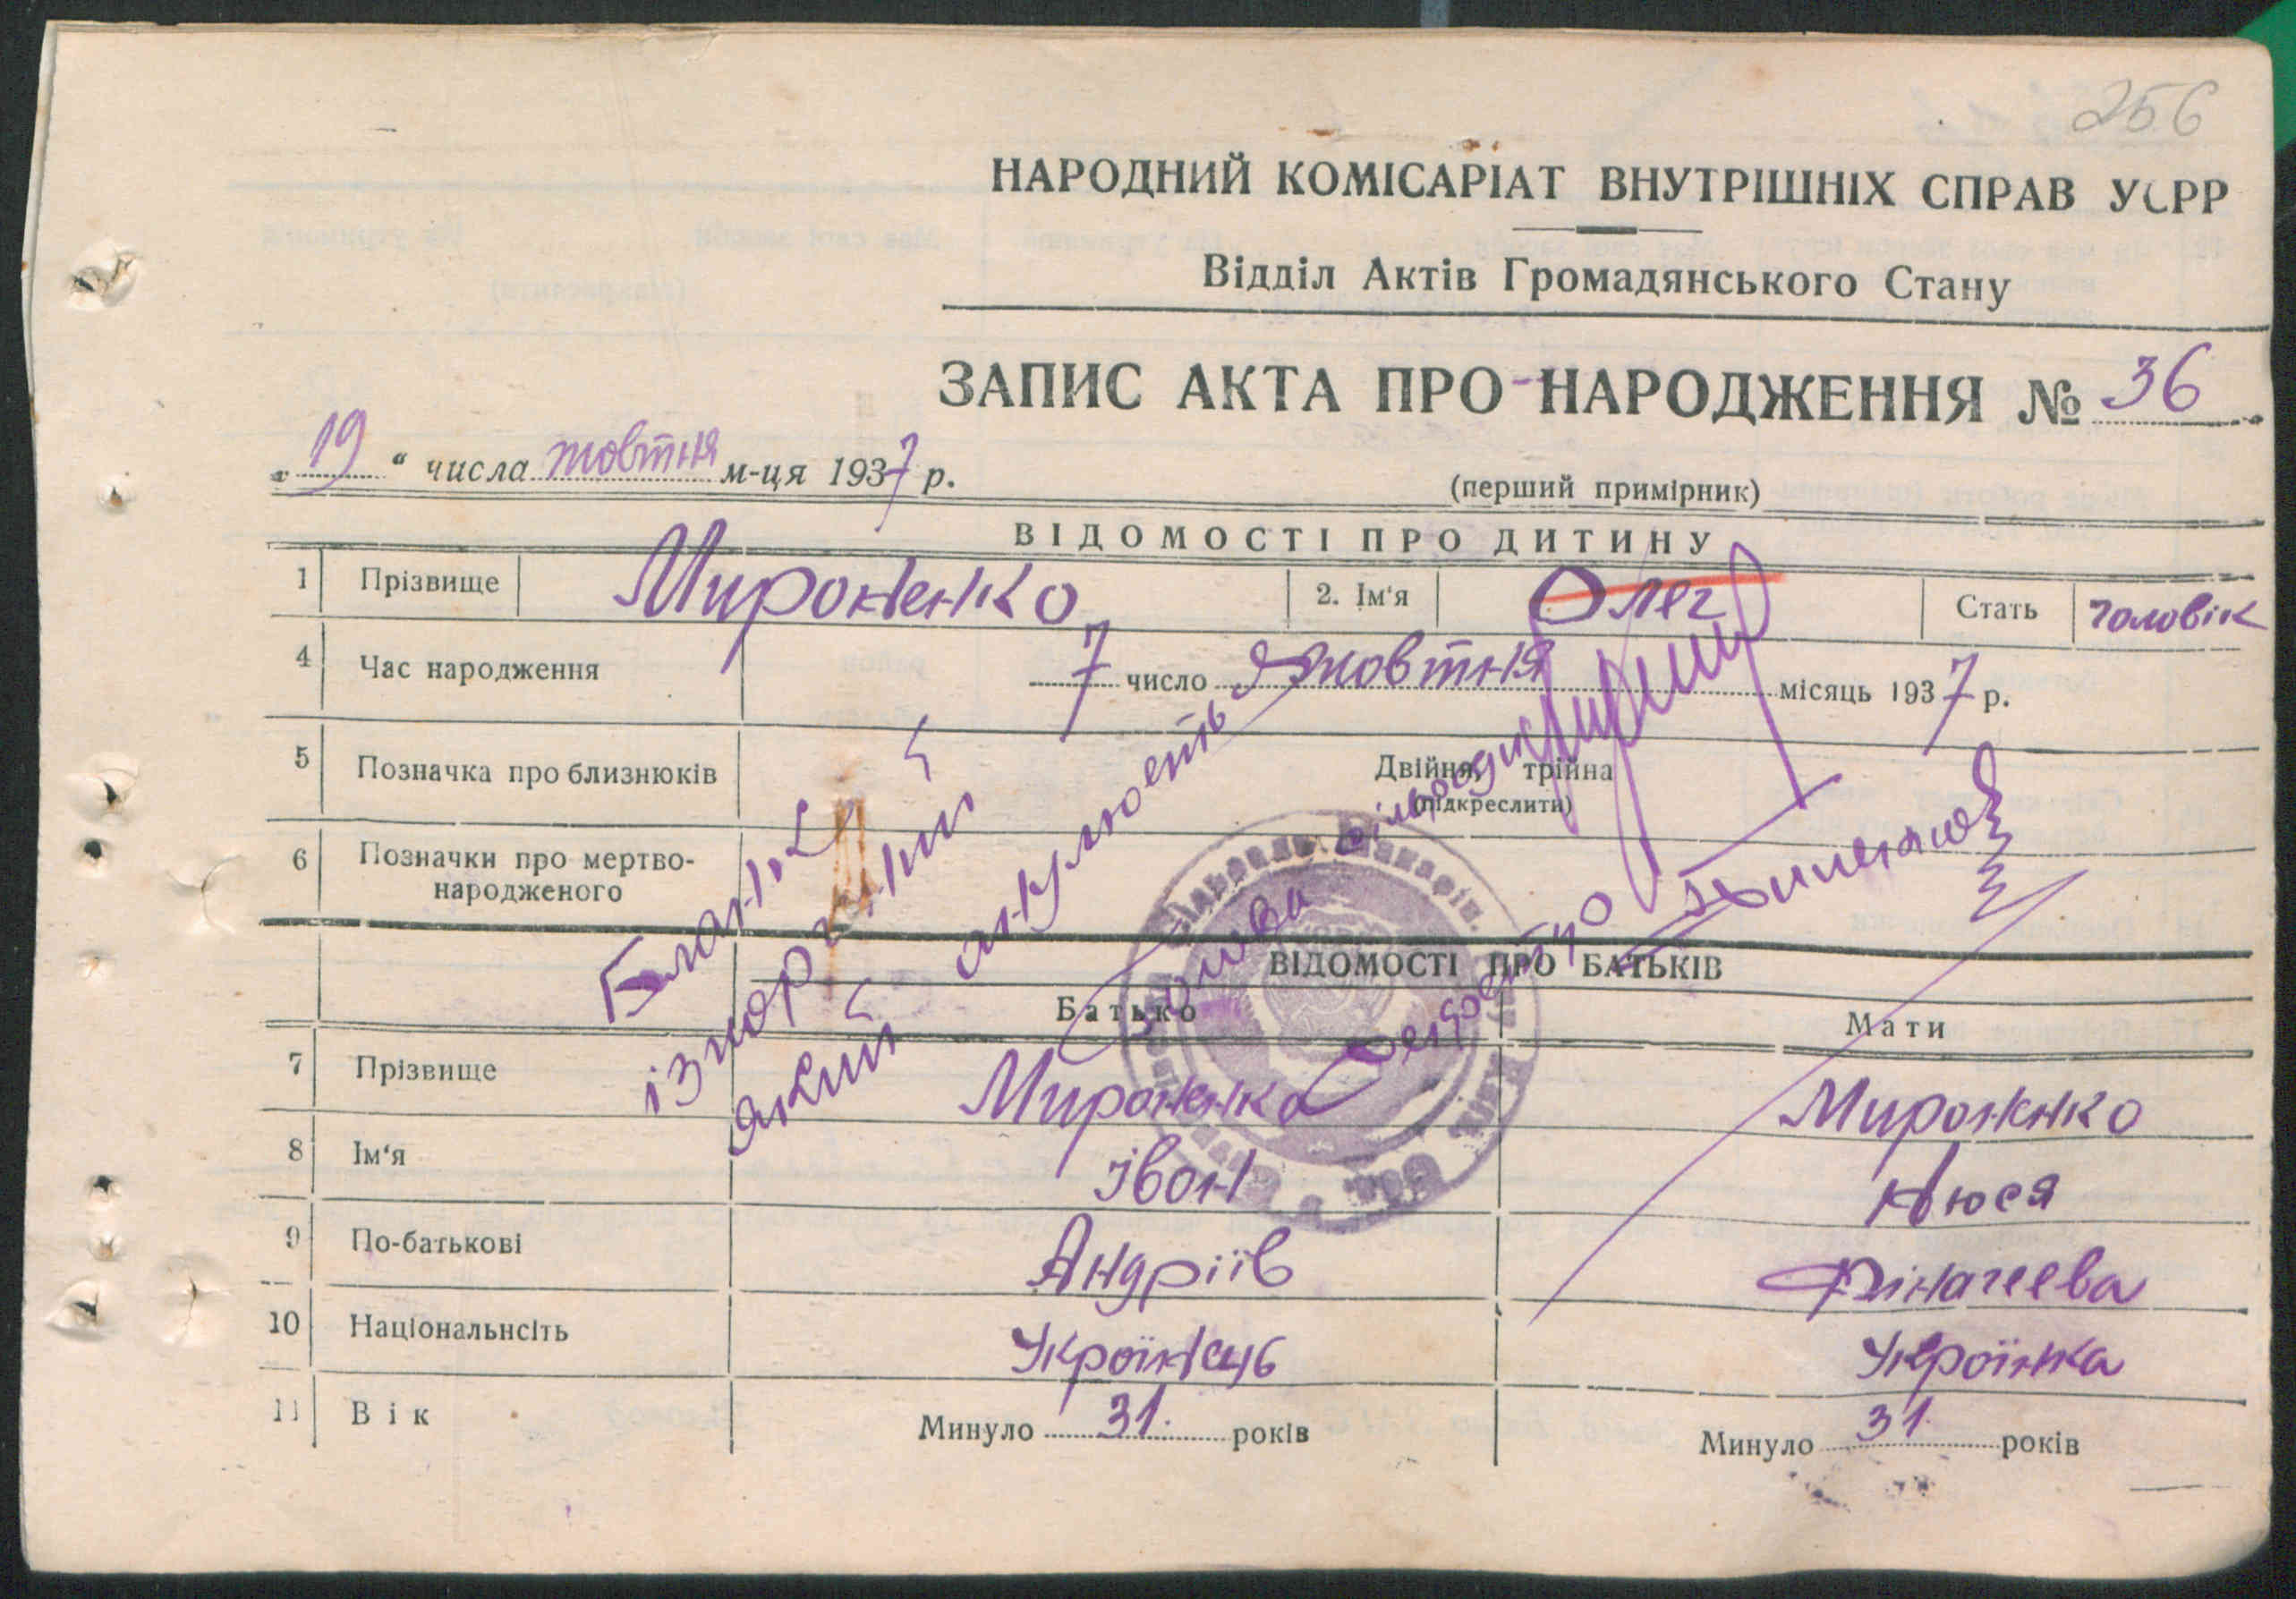 256
НАРОДНИЙ КОМІСАРІАТ ВНУТРІШНІХ СПРАВ УСРР
Відділ Актів Громадянського Стану
ЗАПИС АКТА ПРО НАРОДЖЕННЯ № 36
„ 19 “ числа жовтня м-ця 1937 р.
(перший примірник)
ВІДОМОСТІ ПРО ДИТИНУ
1 Прізвище Мироненко 2. Ім'я Олег Стать чоловік
4 Час народження 7 число жовтня місяць 1937 р.
5 Позначка про близнюків Двійня, трійна
(підкреслити)
6 Позначки про мертво-
народженого
Бланк
який анулюєть
голова сільради
ВІДОМОСТІ ПРО БАТЬКІВ
Батько Мати
7 Прізвище Мироненко Мироненко
8 Ім'я Іван Нюся
9 По-батькові Андріїв
10 Національнсіть Українець Українка
11 Вік Минуло 31. років Минуло 31. років